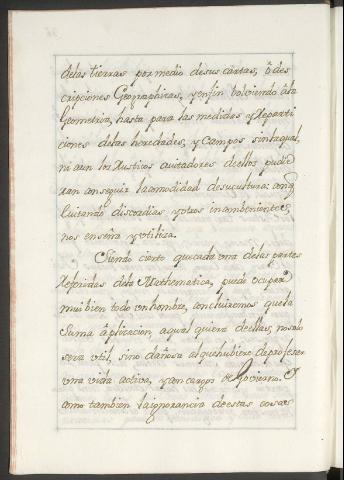 delas tierras por medio desus cartas, ò des
cripciones Geographicas, y enfin bolviendo àla
Geometria, hasta para las medidas y Reparti
ciones delas heredades, y Campos sinlaqual
ni aun los Rusticos cultadores dellos pudie
ran conseguir lacomodidad desucultura: conq
Evitando discordias y otros inconbenientes,
nos enseña y utiliza.
Siendo cierto que cada vna delas partes
Referidas dela Mathematica, puede ocupar
mui bien todo vn hombre, concluiremos que la
Suma àplicacion, aqual quiera dellas, nosolo
sera vtil, sino dañosa alquehubiere deprofesar
vna vida activa, y con cargos de Govierno. Y
como tambien la ignorancia deestas cosas